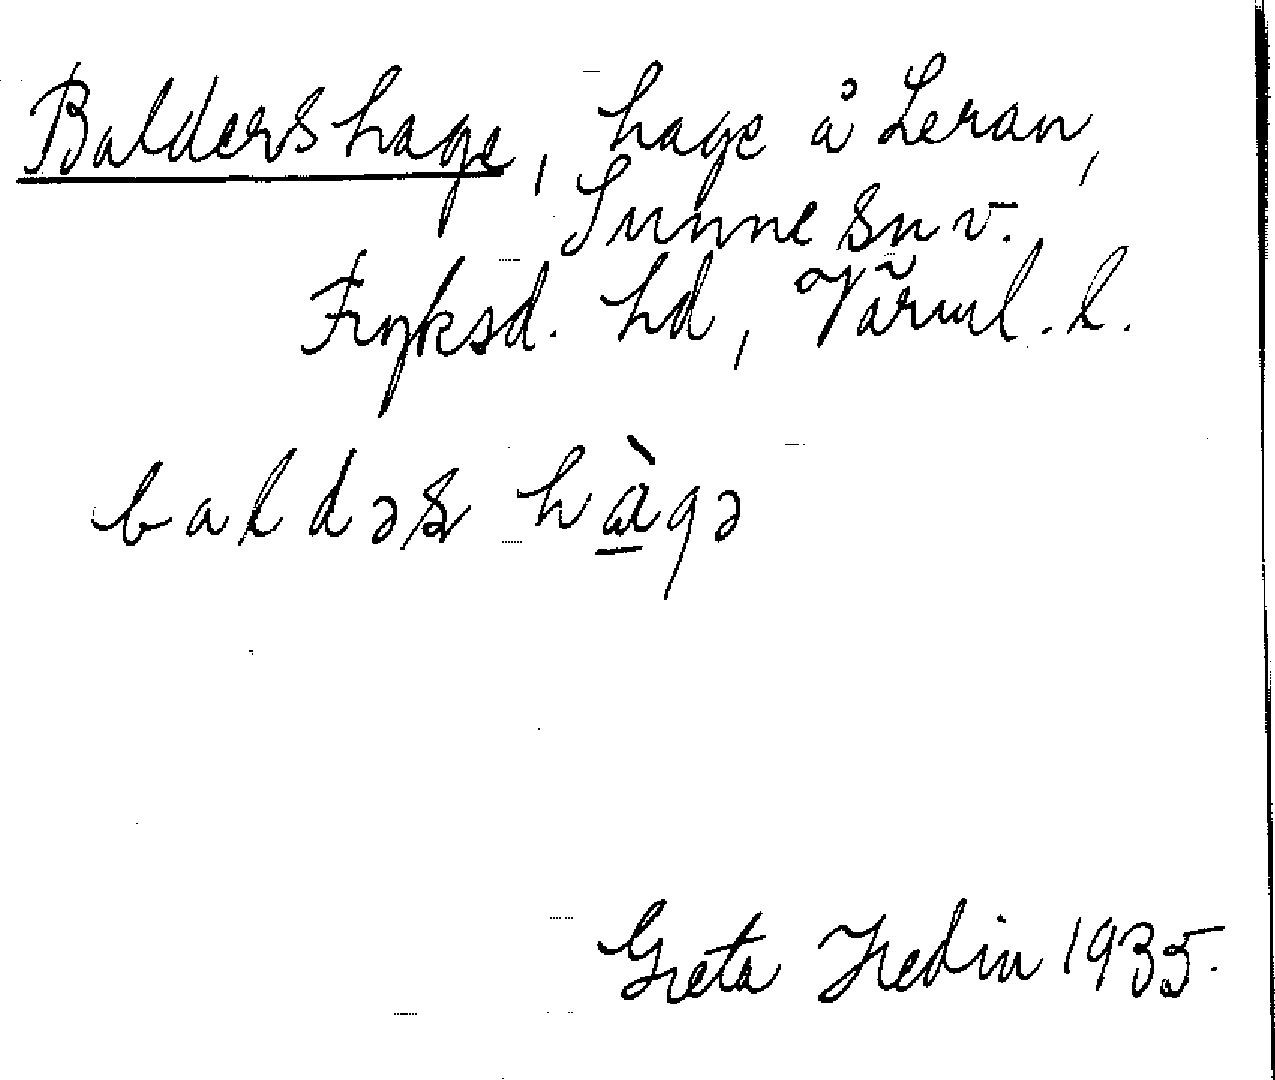 Baldershage, hage å Leran,
Sunne sn v.
Fryksd. hd, Värml. l.
baldəs hàgə
Greta Hedin 1935.